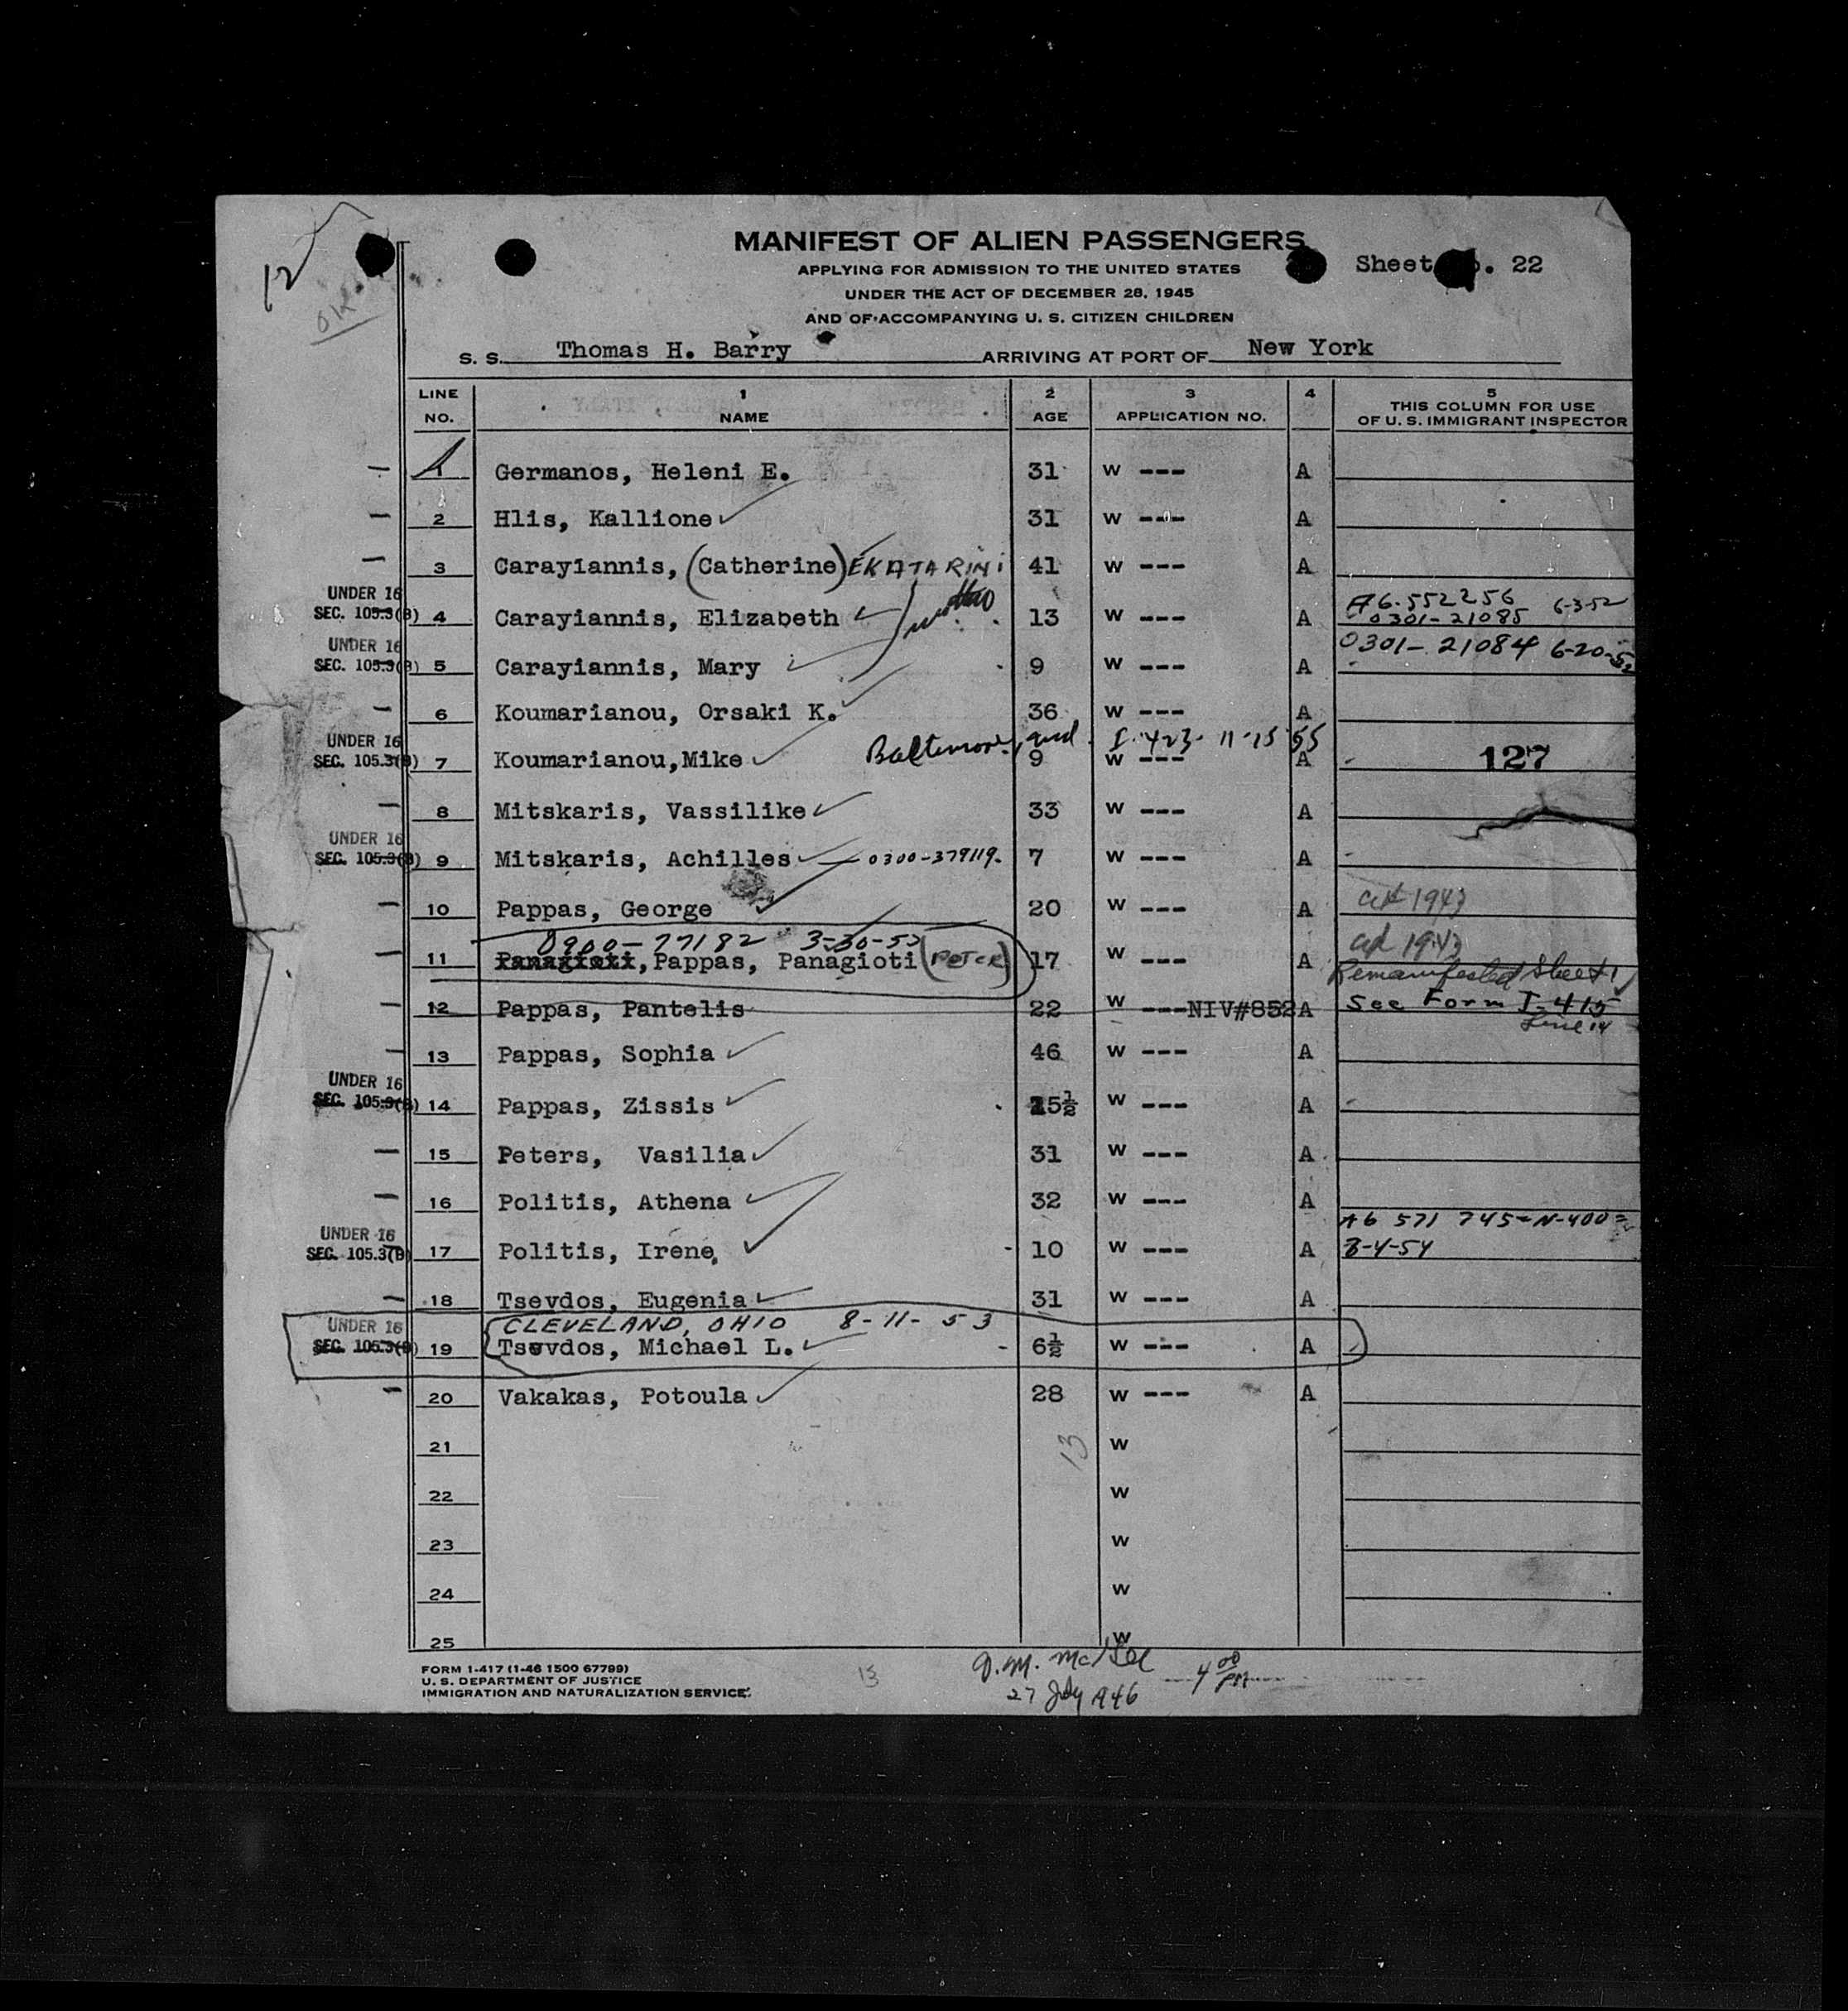 12
MANIFEST OF ALIEN PASSENGERS
APPLYING FOR ADMISSION TO THE UNITED STATES
UNDER THE ACT OF DECEMBER 28, 1945
AND OF ACCOMPANYING U. S. CITIZEN CHILDREN
Sheet . 22
S. S. Thomas H. Barry ARRIVING AT PORT OF New York
LINE NO. 1 NAME 2 AGE 3 APPLICATION NO. 4 5 THIS COLUMN FOR USE OF U. S. IMMIGRANT INSPECTOR
— 1 Germanos, Heleni E. 31 W --- A
— 2 Hlis, Kallione 31 W --- A
— 3 Carayiannis, (Catherine) EKATARINI 41 W --- A
UNDER 16 A6-552256 6-3-52
SEC. 105.3(B) 4 Carayiannis, Elizabeth 13 W --- A 0301-21085
UNDER 16 0301-21084 6-20-52
SEC. 105.3(B) 5 Carayiannis, Mary 9 W --- A
— 6 Koumarianou, Orsaki K. 36 W --- A
UNDER 16 Baltimore, I-423- 11-15 55
SEC. 105.3(B) 7 Koumarianou,Mike 9 W --- A 127
— 8 Mitskaris, Vassilike 33 W --- A
UNDER 16
SEC. 105.3(B) 9 Mitskaris, Achilles — 0300-379119. 7 W --- A
— 10 Pappas, George 20 W --- A 1943
0900-77182 3-30-53
— 11 Panagioti, Pappas, Panagioti (PETER) 17 W --- A 1943
Remanifested Sheet 1
— 12 Pappas, Pantelis 22 W ---NIV#852 A See Form I-415
Line 14
— 13 Pappas, Sophia 46 W --- A
UNDER 16
SEC. 105.3(B) 14 Pappas, Zissis 15½ W --- A
— 15 Peters, Vasilia 31 W --- A
— 16 Politis, Athena 32 W --- A
UNDER 16 A6 571 745-N-400
SEC. 105.3(B) 17 Politis, Irene 10 W --- A 3-4-54
— 18 Tsevdos, Eugenia 31 W --- A
UNDER 16 CLEVELAND, OHIO 8-11-53
SEC. 105.3(B) 19 Tsevdos, Michael L. 6½ W --- A
— 20 Vakakas, Potoula 28 W --- A
21 13 W
22 W
23 W
24 W
25 W
FORM I-417 (1-46 1500 67799)
U. S. DEPARTMENT OF JUSTICE
IMMIGRATION AND NATURALIZATION SERVICE.
13
27 July 1946
4 00 PM